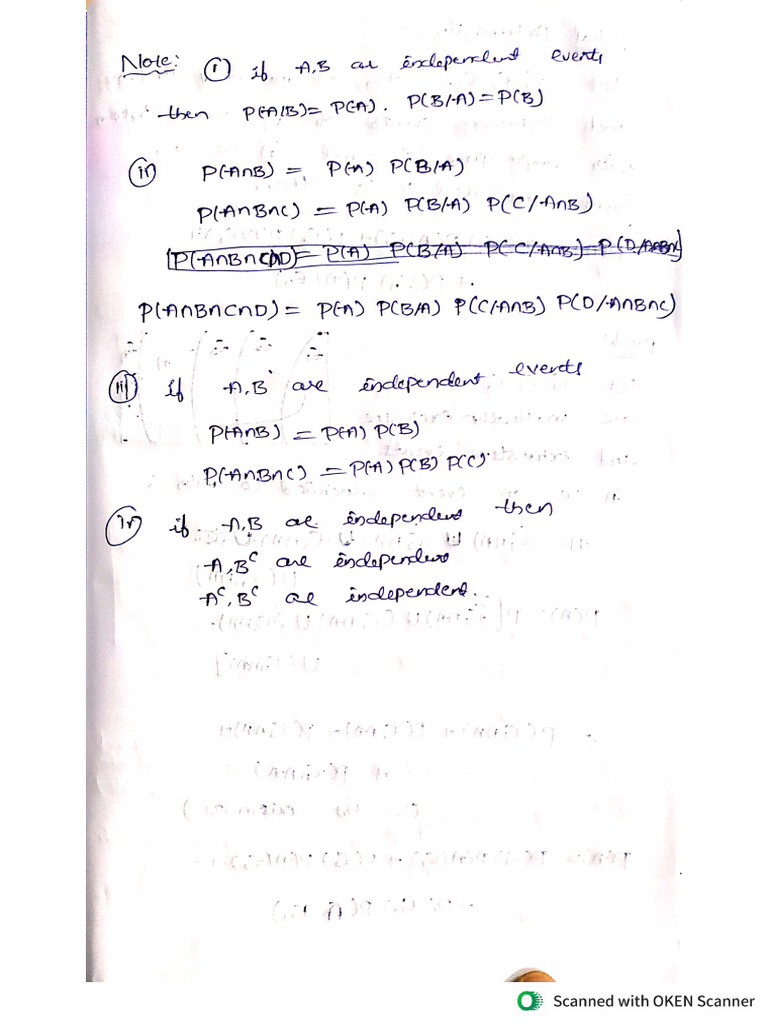 Note: (i) if A,B are independent events
then P(A/B)= P(A). P(B/A)=P(B)
(ii) P(A∩B) = P(A) P(B/A)
P(A∩B∩C) = P(A) P(B/A) P(C/A∩B)
P(A∩B∩C∩D)= P(A) P(B/A) P(C/A∩B) P(D/A∩B∩C)
P(A∩B∩C∩D) = P(A) P(B/A) P(C/A∩B) P(D/A∩B∩C)
(iii) if A,B are independent events
P(A∩B) = P(A) P(B)
P(A∩B∩C) = P(A) P(B) P(C)
(iv) if A,B are independent then
A,Bᶜ are independent
Aᶜ,Bᶜ are independent.
Scanned with OKEN Scanner